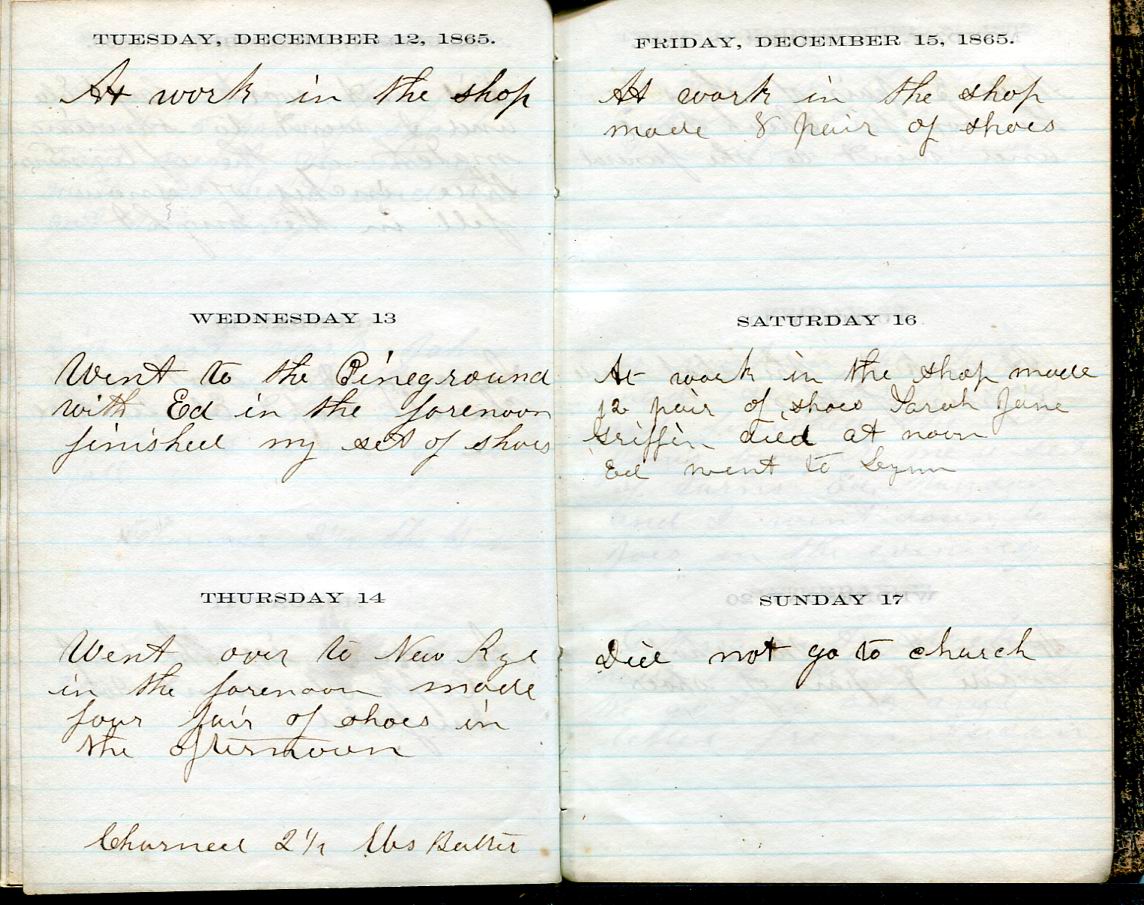 TUESDAY, DECEMBER 12, 1865.
At work in the shop
WEDNESDAY 13
Went to the Pineground
with Ed in the forenoon
finished my set of shoes
THURSDAY 14
Went over to New Rye
in the forenoon made
four pair of shoes in
the afternoon
Churned 2 1/2 lbs Butter
FRIDAY, DECEMBER 15, 1865.
At work in the shop
made 8 pair of shoes
SATURDAY 16
At work in the shop made
12 pair of shoes Sarah Jane
Griffin died at noon
Ed went to Lynn
SUNDAY 17
Did not go to church